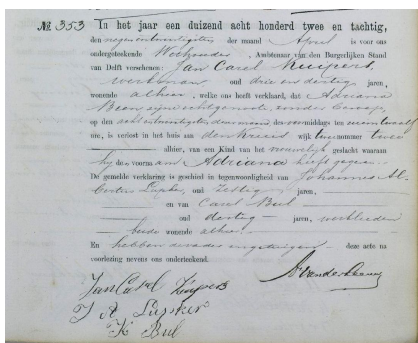 № 353 In het jaar een duizend acht honderd twee en tachtig,
den negenentwintigsten der maand April is voor ons
ondergeteekende Wethouder, Ambtenaar van den Burgerlijken Stand
van Delft verschenen: Jan Carel Kuijpers,
werkman oud drie en dertig jaren,
wonende alhier, welke ons heeft verklaard, dat Adriana
zijne echtgenoote, zonder beroep,
op den acht en twintigsten dezer maand des voormiddags ten
ure, is verlost in het huis aan wijk nummer twee
alhier, van een Kind van het geslacht waaraan
hij de voornaam Adriana heeft gegeven
De gemelde verklaring is geschied in tegenwoordigheid van Johannes Al-
bertus Lupker, oud zestig jaren,
en van Carel Bul
oud dertig jaren, werklieden
beide wonende alhier
En hebben deze acte na
voorlezing nevens ons onderteekend.
Jan Carel Kuijpers
J A Lupker
K Bul